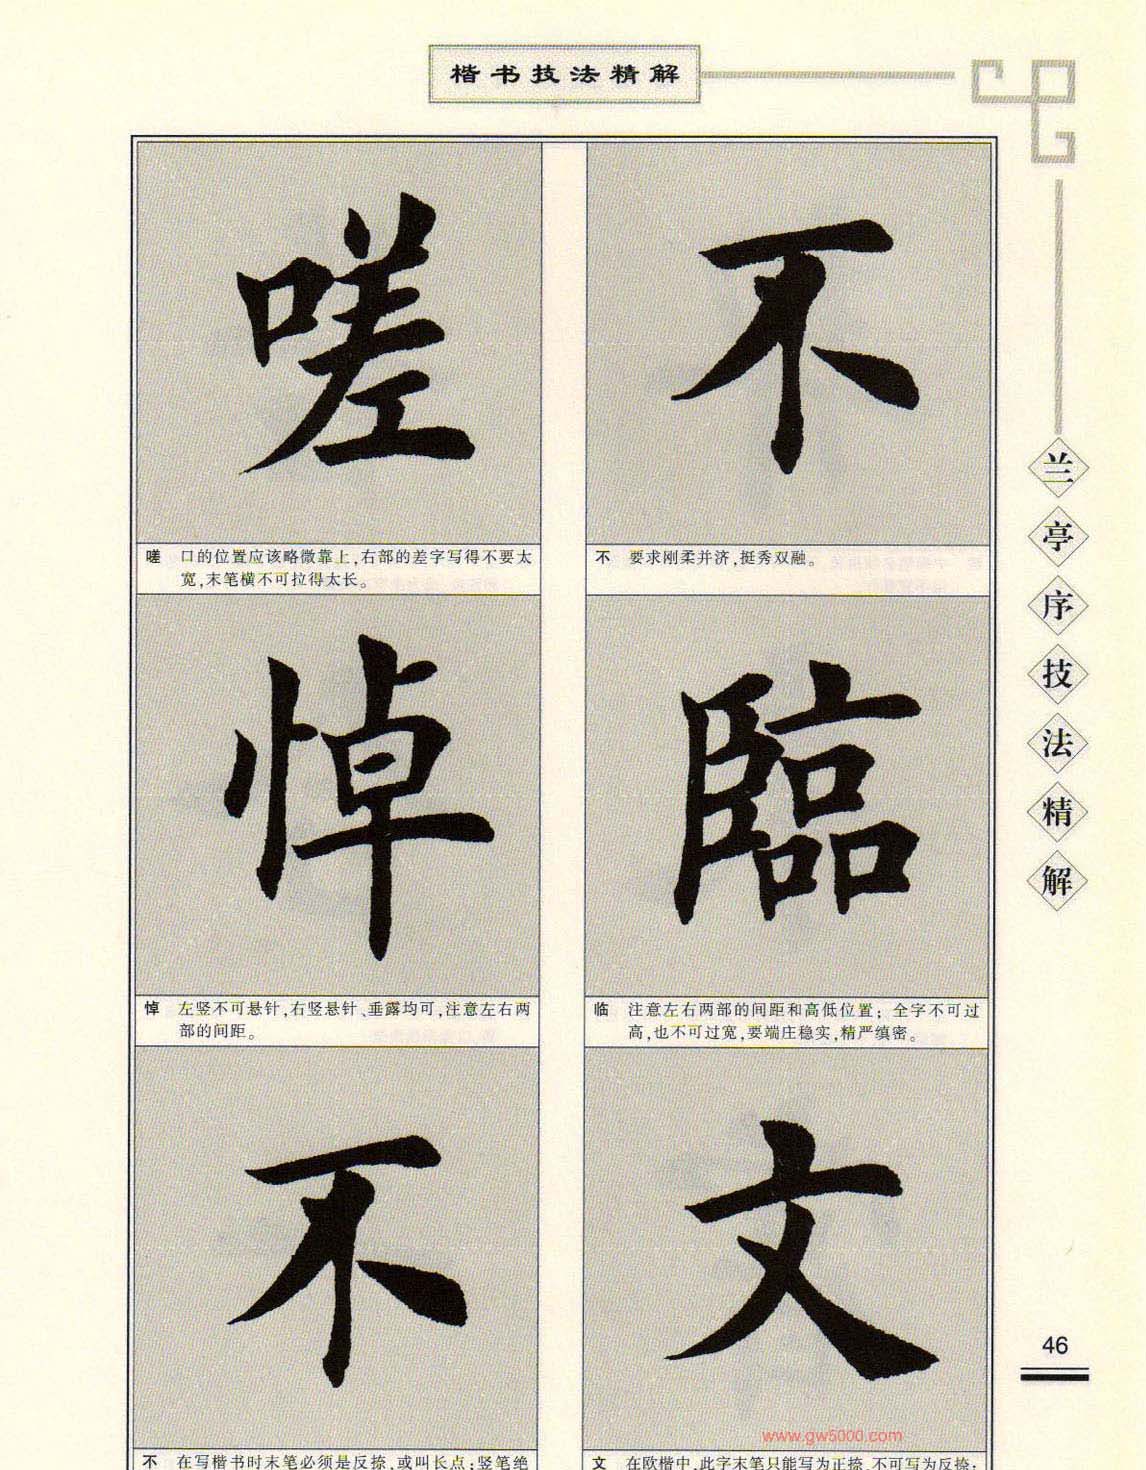 楷书技法精解
兰亭序技法精解
不
不 要求刚柔并济,挺秀双融。
臨
临 注意左右两部的间距和高低位置;全字不可过
高,也不可过宽,要端庄稳实,精严缜密。
文
文 在欧楷中,此字末笔只能写为正捺,不可写为反捺,
嗟
嗟 口的位置应该略微靠上,右部的差字写得不要太
宽,末笔横不可拉得太长。
悼
悼 左竖不可悬针,右竖悬针、垂露均可,注意左右两
部的间距。
不
不 在写楷书时末笔必须是反捺,或叫长点;竖笔绝
46
www.gw5000.com